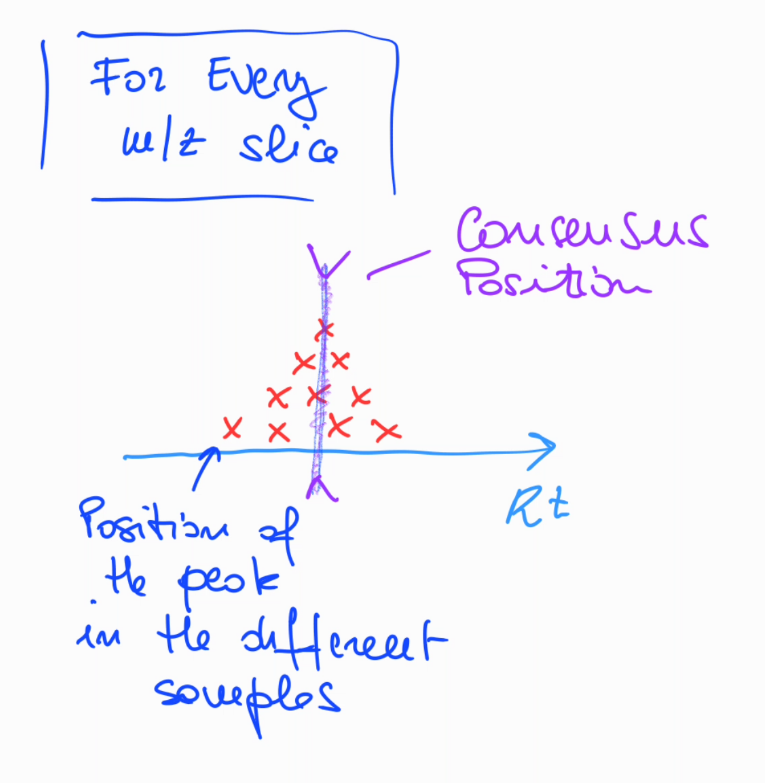 For Every
m/z slice
Consensus
Position
Rt
Position of
the peak
in the different
samples